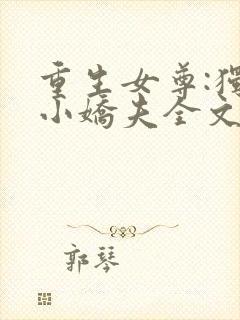 重生女尊:獨
小嬌夫全文
郭琴